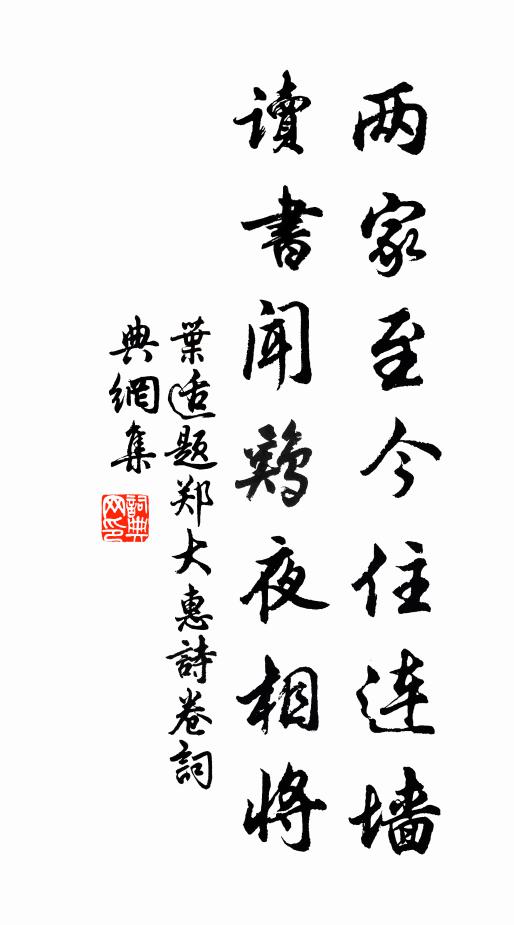 两家至今住连墙
读书闻鷄夜相将
葉适题郑大惠詩卷詞
典網集
詞典
网印